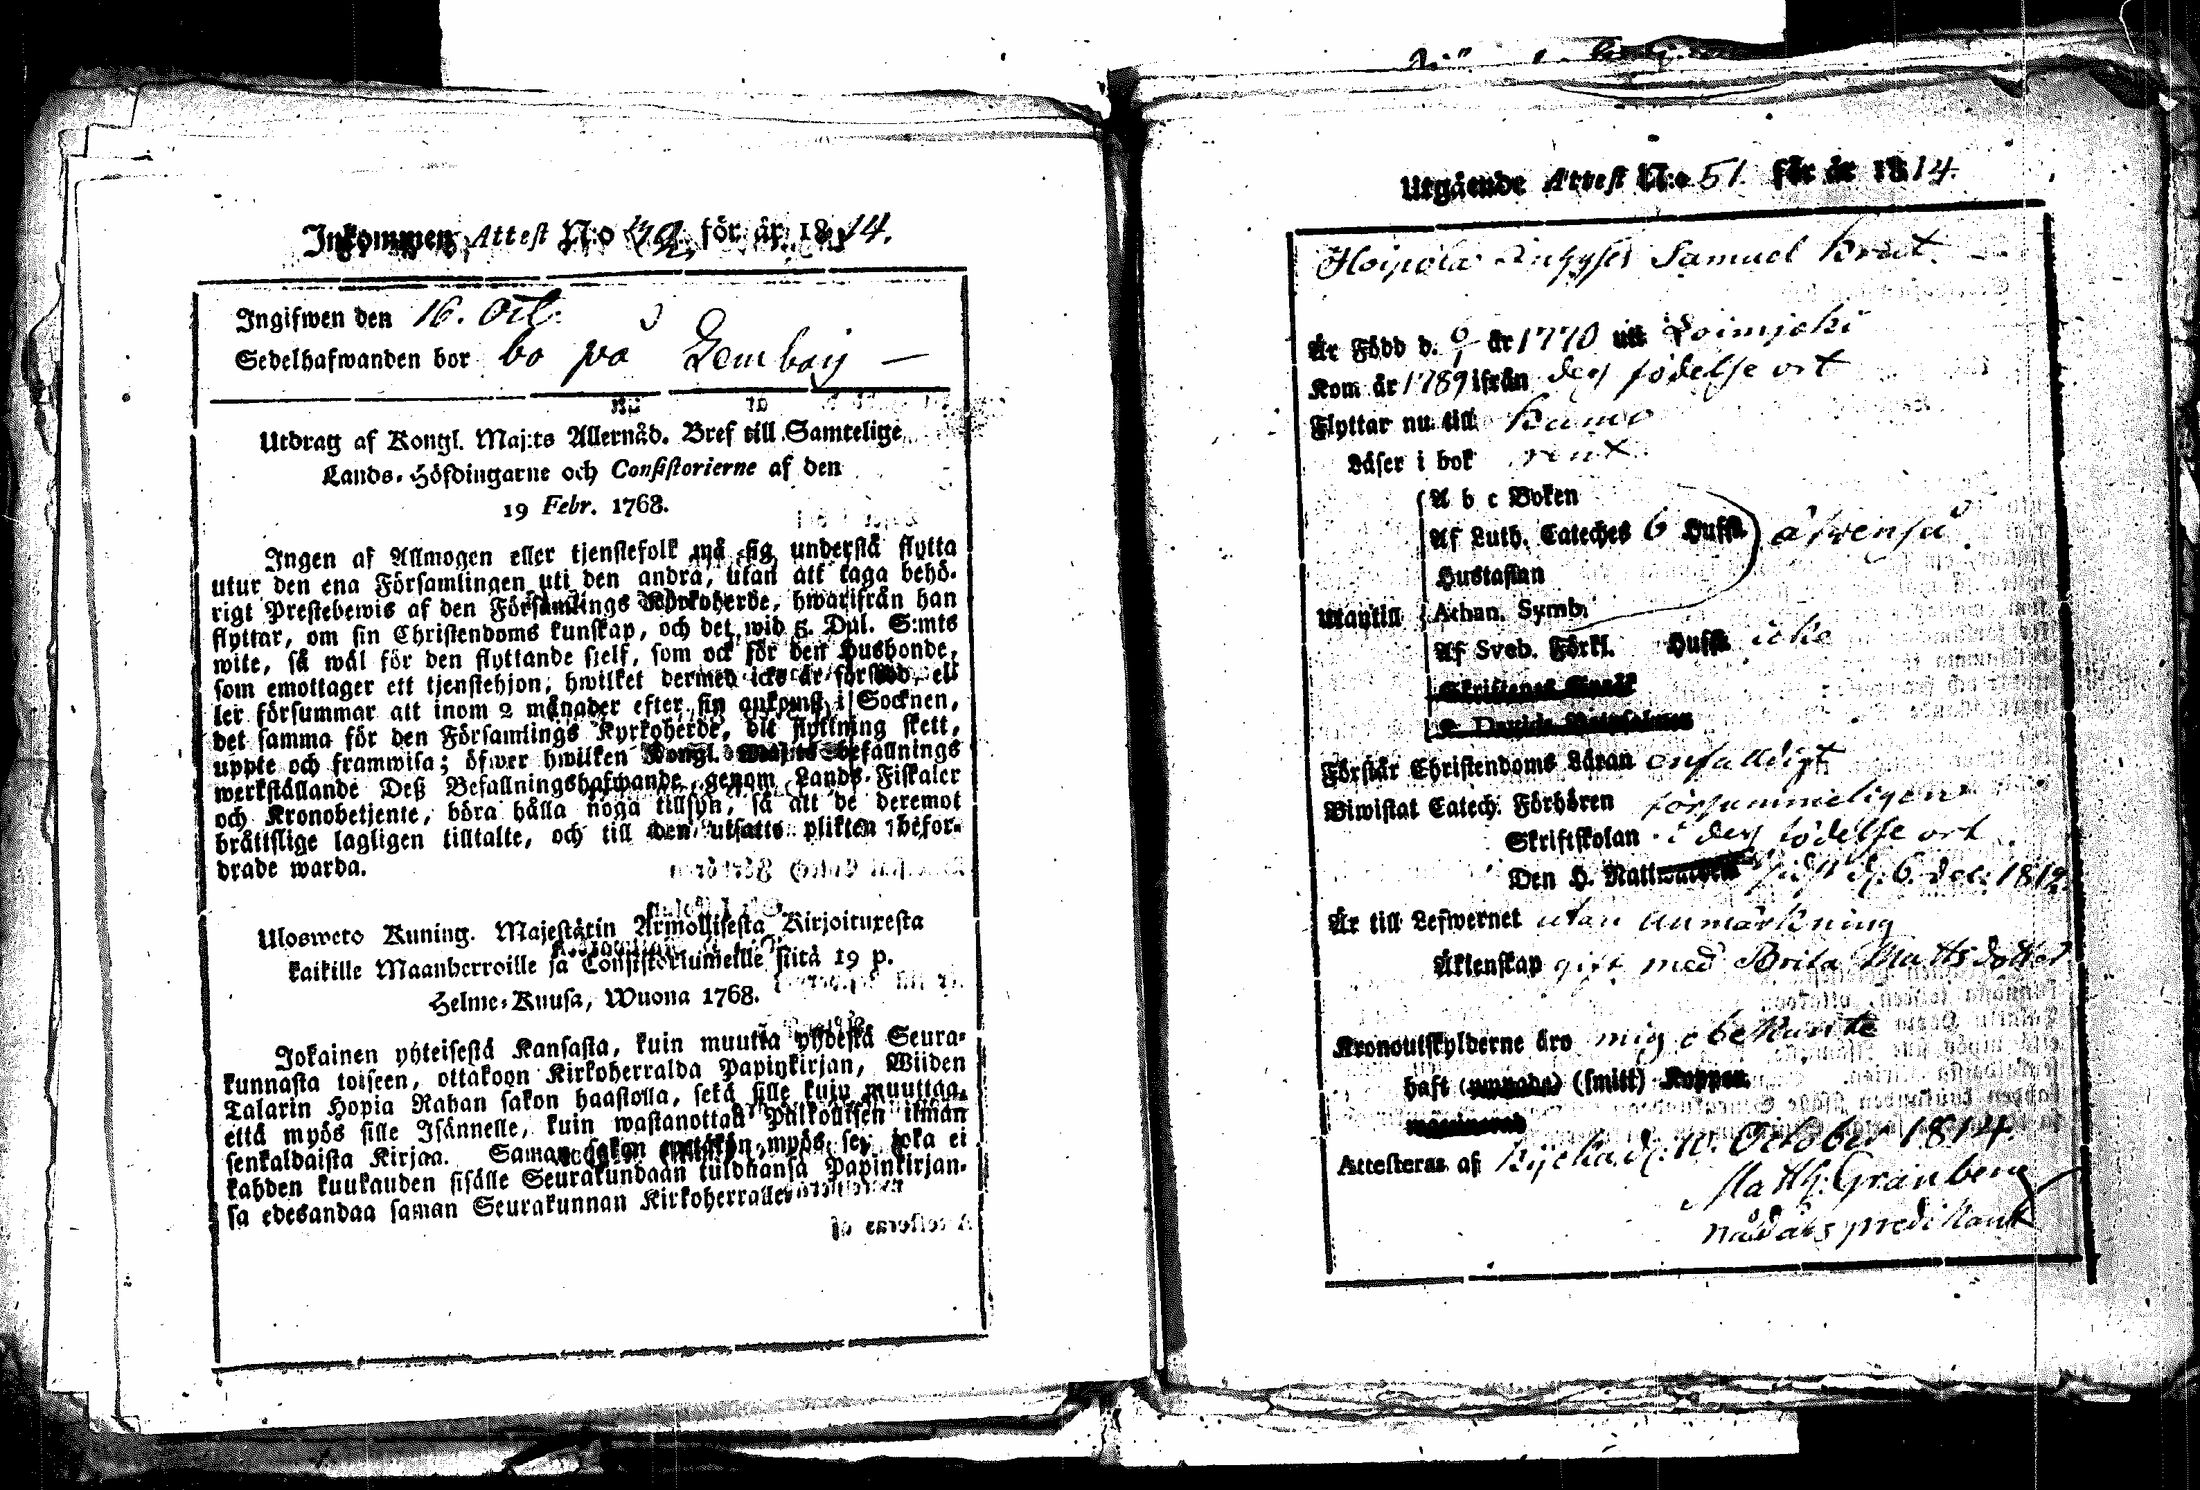 Inkommen Attest N:o 42 för år 1814.
Ingifwen den 16. Oct.
Sedelhafwanden bor bo på Lembois —
Utdrag af Kongl. Maj:ts Allernåd. Bref till Samtelige
Lands-Höfdingarne och Consistorierne af den
19 Febr. 1768.
Ingen af Allmogen eller tjenstefolk må sig understå flytta
utur den ena Församlingen uti den andra, utan att taga behö-
rigt Prestebewis af den Församlings Kyrkoherde, hwarifrån han
flyttar, om sin Christendoms kunskap, och det wid 5. Dal. S:mts
wite, så wäl för den flyttande sielf, som ock för den Husbonde,
som emottager ett tjenstehjon, hwilket dermed icke är försedd, el-
ler försummar att inom 2 månader efter sin ankomst i Socknen,
det samma för den Församlings Kyrkoherde, dit flyttning skett,
uppte och framwisa; öfwer hwilken Kongl. Maj:ts befallnings
werkställande Deß Befallningshafwande, genom Lands-Fiskaler
och Kronobetjente, böra hålla noga tillsyn, så att de deremot
bråttslige lagligen tilltalte, och till den utsatte plikten befor-
drade warda.
Ulosweto Kuning. Majestätin Armollisesta Kirjoituxesta
kaikille Maanherroille ja Consistoriumeille siitä 19 p.
Helme-Kuusa, Wuona 1768.
Jokainen yhteisestä Kansasta, kuin muutta yhdestä Seura-
kunnasta toiseen, ottakoon Kirkoherralda Papinkirjan, Wiiden
Talarin Hopia Rahan sakon haastolla, sekä sille kuin muuttaa,
että myös sille Isännelle, kuin wastanottaa Palkollisen ilman
senkaldaista Kirjaa. Saman sakon wetäkön myös se, joka ei
kahden kuukauden sisälle Seurakundaan tulduansa Papinkirjan-
sa edesandaa saman Seurakunnan Kirkoherralle.
Utgående Attest N:o 51. för år 1814.
Samuel
Är Född d. 9/1 år 1770 uti Loimjoki
Kom år 1789 ifrån des födelse ort
Flyttar nu till Kumo
Läser i bok rent
A b c Boken
Af Luth. Cateches 6 Hufst. äfvenså
Hustaflan
Utantill Athan. Symb.
Af Sveb. Förkl. Hufst. icke
Förstår Christendoms Läran enfaldigt
Biwistat Catech. Förhören försummeligen
Skriftskolan i des födelse ort
Den H. Nattwarden sidst d. 6. dec. 1812.
Är till Lefwernet utan anmärkning
Äktenskap gift med Brita Mattsdotter
Kronoutskylderne äro mig obekante
haft (smitt) Koppor.
Attesteras af Kjulo d. 10. October 1814.
Matth: Granberg
nådårs predikant